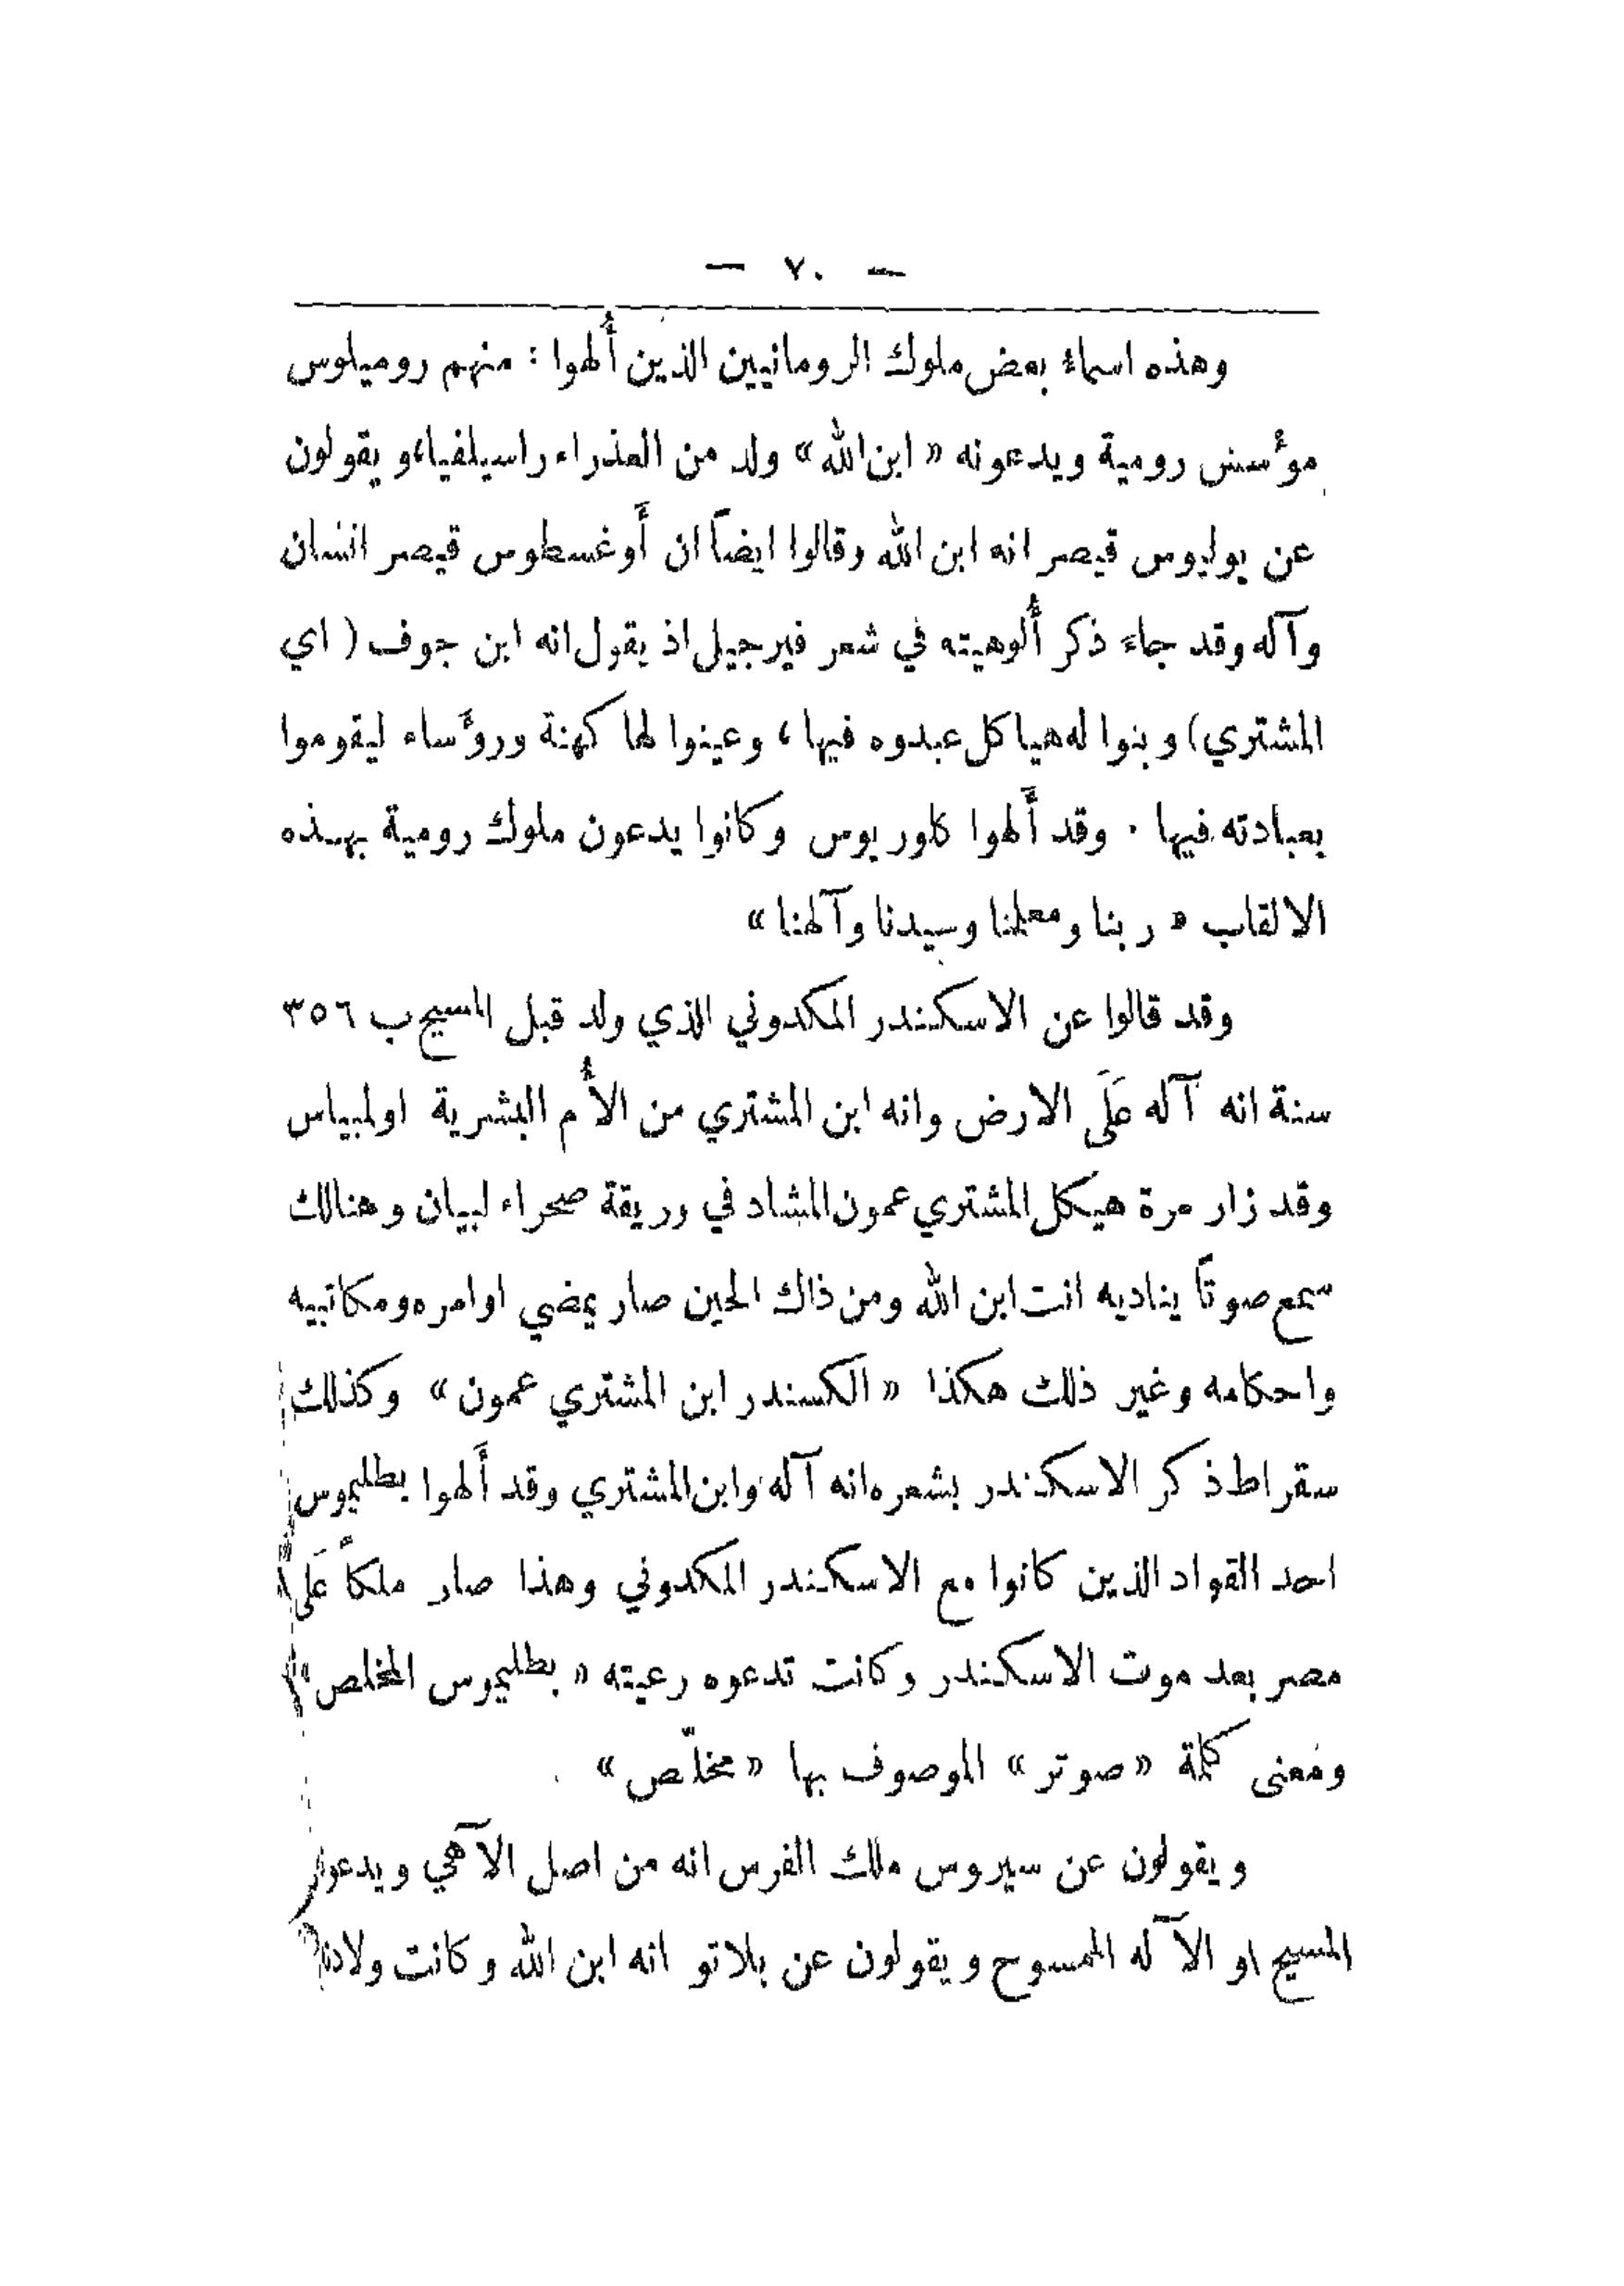 — ٧٠ —
وهذه اسماء بعض ملوك الرومانيين الذين أُلهوا : منهم روميلوس
مؤسس رومية ويدعونه « ابن الله » ولد من العذراء راسيلفيا، ويقولون
عن يوليوس قيصر انه ابن الله وقالوا ايضاً ان أَوغسطوس قيصر انسان
وآله وقد جاءَ ذكر أُلوهيته في شعر فيرجيل اذ يقول انه ابن جوف ( اي
المشتري) وبنوا له هياكل عبدوه فيها ، وعينوا لها كهنة ورؤَساء ليقوموا
بعبادته فيها . وقد أَلهوا كلوريوس وكانوا يدعون ملوك رومية بهذه
الالقاب « ربنا ومعلمنا وسيدنا وآلهنا »
وقد قالوا عن الاسكندر المكدوني الذي ولد قبل المسيح ب ٣٥٦
سنة انه آله عَلَى الارض وانه ابن المشتري من الأُم البشرية اولمبياس
وقد زار مرة هيكل المشتري عمون المشاد في وريقة صحراء لبيان وهنالك
سمع صوتاً يناديه انت ابن الله ومن ذاك الحين صار يمضي اوامره ومكاتيبه
واحكامه وغير ذلك هكذا « الكسندر ابن المشتري عمون » وكذلك
سقراط ذكر الاسكندر بشعره انه آله وابن المشتري وقد أَلهوا بطليموس
احد القواد الذين كانوا مع الاسكندر المكدوني وهذا صار ملكاً عَلَى
مصر بعد موت الاسكندر وكانت تدعوه رعيته « بطليموس المخلص »
ومعنى كلمة « صوتر » الموصوف بها « مخلّص »
ويقولون عن سيروس ملك الفرس انه من اصل الآهي ويدعو
المسيح او الآله الممسوح ويقولون عن بلاتو انه ابن الله وكانت